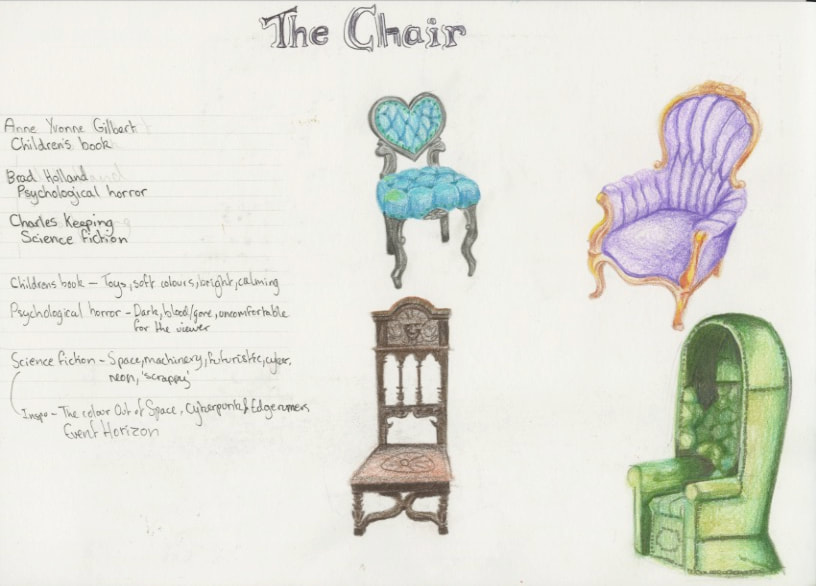 The Chair
Anne Yvonne Gilbert
Children's book
Brad Holland
Psychological horror
Charles Keeping
Science fiction
Childrens book – Toys, soft colours, bright, calming
Psychological horror – Dark, blood/gore, uncomfortable
for the viewer
Science fiction – Space, machinery, futuristic, cyber,
neon, 'scrappy'
Inspo – The colour Out of Space, Cyberpunk Edgerunners
Event Horizon